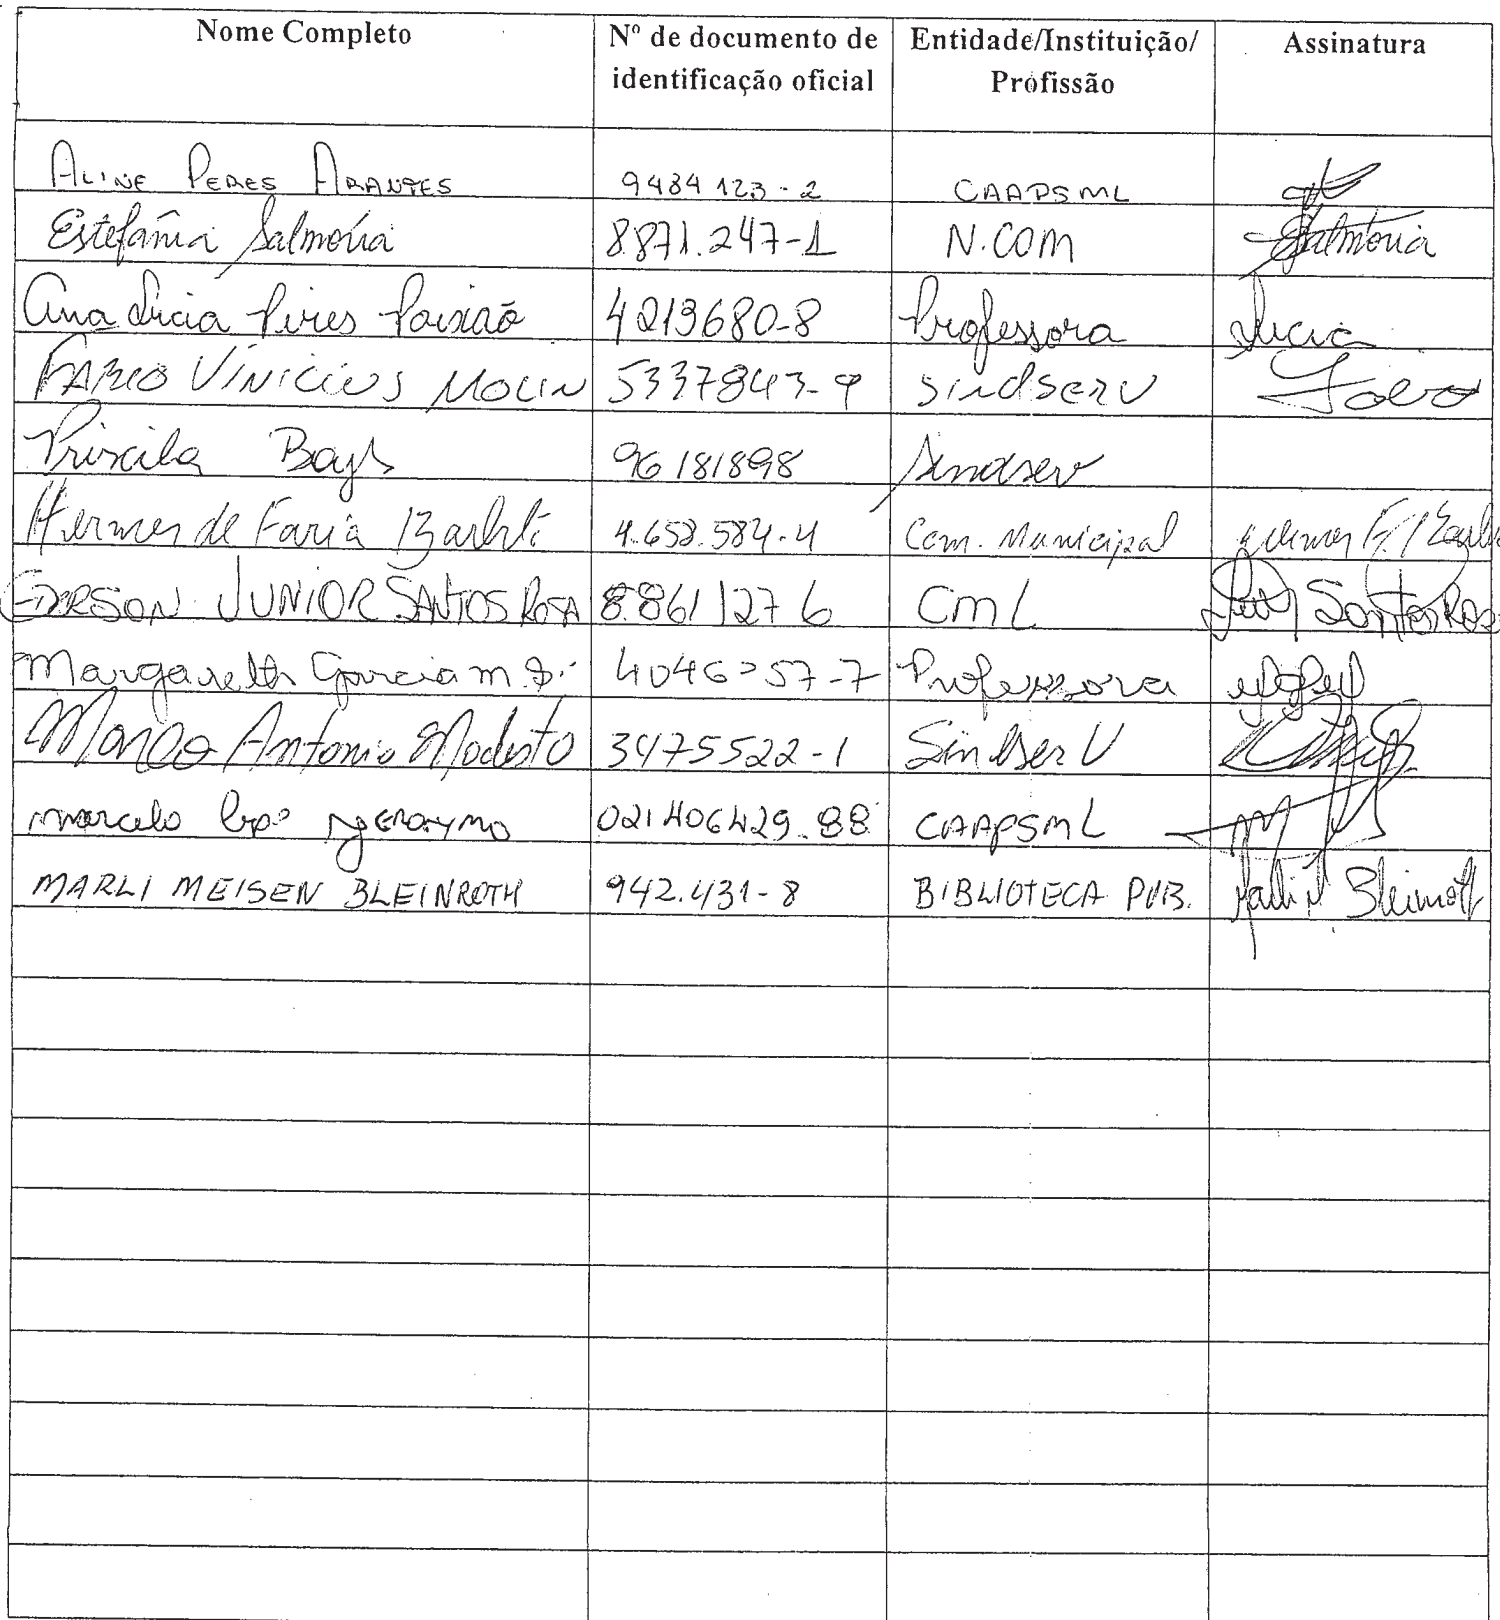 Nome Completo Nº de documento de identificação oficial Entidade/Instituição/ Profissão Assinatura
ALINE PERES ARANTES 9484123-2 CAAPSML
Estefânia Salmória 8.871.247-1 N.COM Salmória
Ana Lucia Pires Paixão 4213680-8 Professora Lucia
FABIO VINICIUS MOLIN 5337843-9 SINDSERV
Priscila 96181898 Sindserv
Hermes de Faria 4.658.584-4 Com. Municipal
EDERSON JUNIOR SANTOS ROSA 8.861127 6 CML Santos Rosa
Margareth Garcia m. Professora
Marco Antonio Modesto 3475522-1 SindserV
marcelo 021406429.88 CAAPSML
MARLI MEISEN BLEINROTH 942.431-8 BIBLIOTECA PUB. Marli M Bleinroth